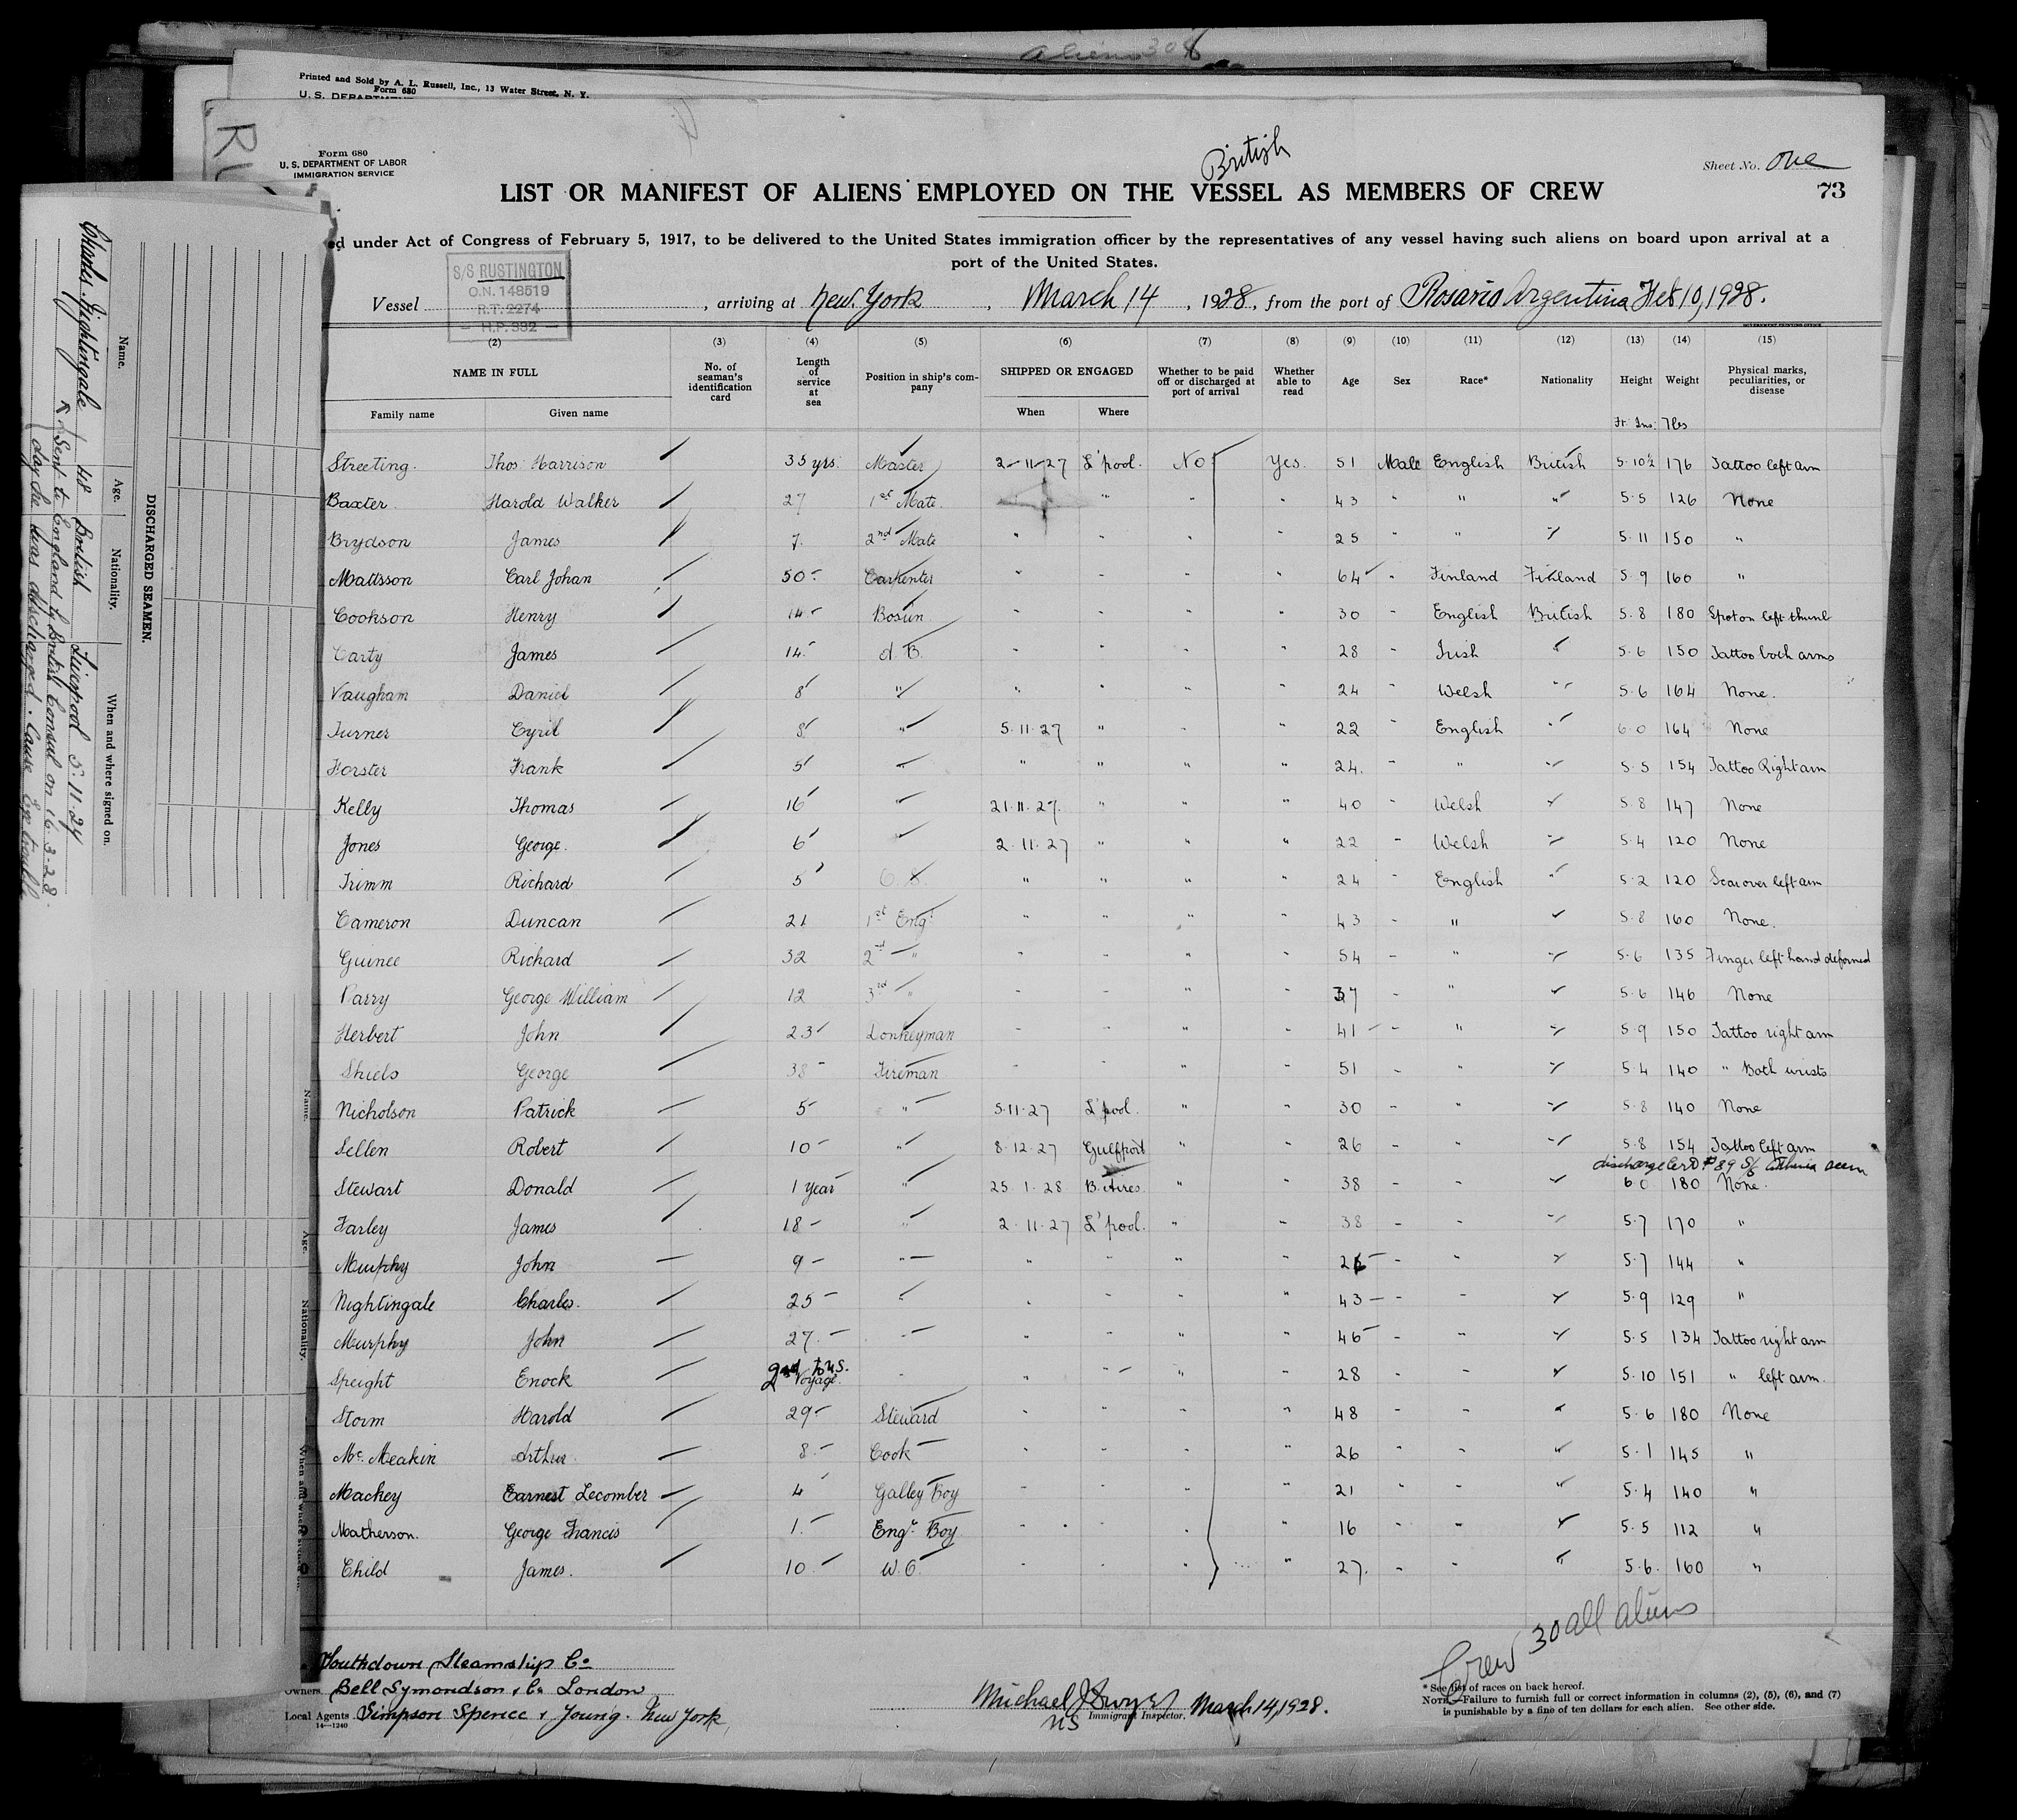 Aliens 30
Printed and Sold by A. L. Russell, Inc., 13 Water Street, N. Y.
Form 680
U. S. DEPARTMENT
Form 680
U. S. DEPARTMENT OF LABOR
IMMIGRATION SERVICE
British
Sheet No. One
LIST OR MANIFEST OF ALIENS EMPLOYED ON THE VESSEL AS MEMBERS OF CREW
73
ed under Act of Congress of February 5, 1917, to be delivered to the United States immigration officer by the representatives of any vessel having such aliens on board upon arrival at a
port of the United States.
S/S RUSTINGTON
O.N. 148519
R.T. 2274
H.P. 332
Vessel , arriving at New York , March 14 , 1928, from the port of Rosario Argentina Feb 10, 1928.
GOVERNMENT PRINTING OFFICE
(2) (3) (4) (5) (6) (7) (8) (9) (10) (11) (12) (13) (14) (15)
NAME IN FULL No. of seaman's identification card Length of service at sea Position in ship's company SHIPPED OR ENGAGED Whether to be paid off or discharged at port of arrival Whether able to read Age Sex Race* Nationality Height Weight Physical marks, peculiarities, or disease
Family name Given name When Where Ft. Ins: lbs
Streeting. Thos. Harrison 35 yrs. Master 2-11-27 L'pool. No Yes. 51 Male English British 5-10½ 176 Tattoo left arm
Baxter. Harold Walker 27 1st Mate. " " " 43 " " " 5-5 126 None
Brydson James 7. 2nd Mate " " " " 25 " " " 5-11 150 "
Mattsson Carl Johan 50 Carpenter " " " " 64 " Finland Finland 5-9 160 "
Cookson Henry 14 Bosun " " " " 30 " English British 5-8 180 Spot on left thumb
Carty James 14 A.B. " " " " 28 " Irish " 5-6 150 Tattoo both arms
Vaugham Daniel 8 " " " " " 24 " Welsh " 5-6 164 None.
Turner Cyril 8 " 5-11-27 " " " 22 " English " 6-0 164 None
Forster Frank 5 " " " " " 24. " " " 5-5 154 Tattoo Right arm
Kelly Thomas 16 " 21-11-27. " " " 40 " Welsh " 5-8 147 None
Jones George. 6 " 2-11-27 " " " 22 " Welsh " 5-4 120 None
Trimm Richard 5 O.S. " " " " 24 " English " 5-2 120 Scar over left arm
Cameron Duncan 21 1st Engr " " " " 43 " " " 5-8 160 None.
Guinee Richard 32 2nd " " " " " 54 " " " 5-6 135 Finger left hand deformed
Parry George William 12 3rd " " " " " 37 " " " 5-6 146 None
Herbert John 23 Donkeyman " " " " 41 " " " 5-9 150 Tattoo right arm
Shiels George 38 Fireman " " " " 51 " " " 5-4 140 " Both wrists
Nicholson Patrick 5 " 5-11-27 L'pool. " " 30 " " " 5-8 140 None
Sellen Robert 10 " 8-12-27 Gulfport " " 26 " " " 5-8 154 Tattoo left arm
discharge Cert # 89 S/S seen
Stewart Donald 1 year " 25-1-28 B. Aires. " " 38 " " " 6-0 180 None.
Farley James 18 " 2-11-27 L'pool. " " 38 " " " 5-7 170 "
Murphy John 9 " " " " " 26 " " " 5-7 144 "
Nightingale Charles. 25 " " " " " 43 " " " 5-9 129 "
Murphy John 27 " " " " " 46 " " " 5-5 134 Tattoo right arm
Speight Enock 2nd to U.S. Voyage. " " " " " 28 " " " 5-10 151 " left arm.
Storm Harold 29 Steward " " " " 48 " " " 5-6 180 None
Mc. Meakin Arthur 8 Cook " " " " 26 " " " 5-1 145 "
Mackey Earnest Lecomber 4 Galley Boy " " " " 21 " " " 5-4 140 "
Matherson. George Francis 1. Engr Boy " " " " 16 " " " 5-5 112 "
Child James. 10 W.O. " " " " 27. " " " 5-6. 160 "
Crew 30 all aliens
Southdown Steamship Co
Owners Bell Symondson & Co London
Local Agents Simpson Spence & Young. New York
14—1240
Michael J Dwyer March 14, 1928.
NS Immigrant Inspector.
* See list of races on back hereof.
NOTE.—Failure to furnish full or correct information in columns (2), (5), (6), and (7)
is punishable by a fine of ten dollars for each alien. See other side.
DISCHARGED SEAMEN.
Name. Age. Nationality. When and where signed on.
Charles Nightingale 48 British Liverpool 5.11.27
Sent to England by British Consul on 16.3.28.
day he was discharged. Cause Eye trouble
Name. Age. Nationality. When and where signed on.